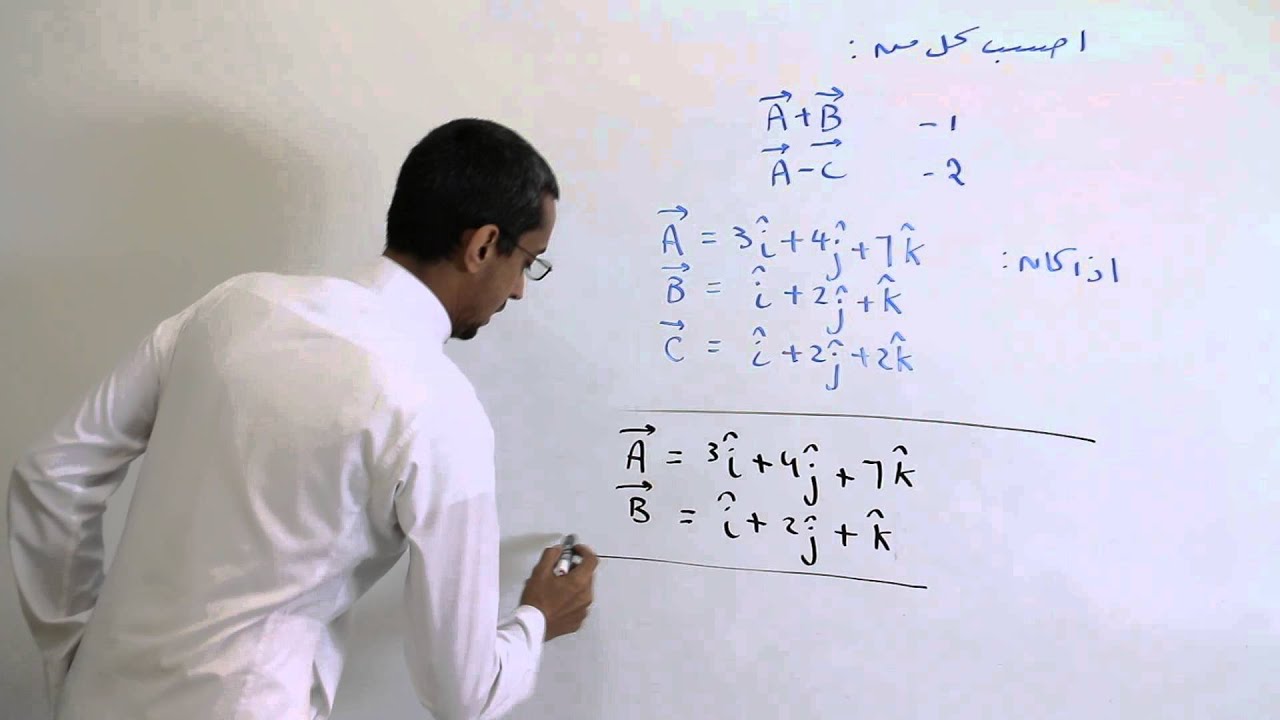 احسب كل من :
1 - $\vec{A}+\vec{B}$
2 - $\vec{A}-\vec{C}$
اذا كان :
$\vec{A} = 3\hat{i}+4\hat{j}+7\hat{k}$
$\vec{B} = \hat{i}+2\hat{j}+\hat{k}$
$\vec{C} = \hat{i}+2\hat{j}+2\hat{k}$
$\vec{A} = 3\hat{i}+4\hat{j}+7\hat{k}$
$\vec{B} = \hat{i}+2\hat{j}+\hat{k}$